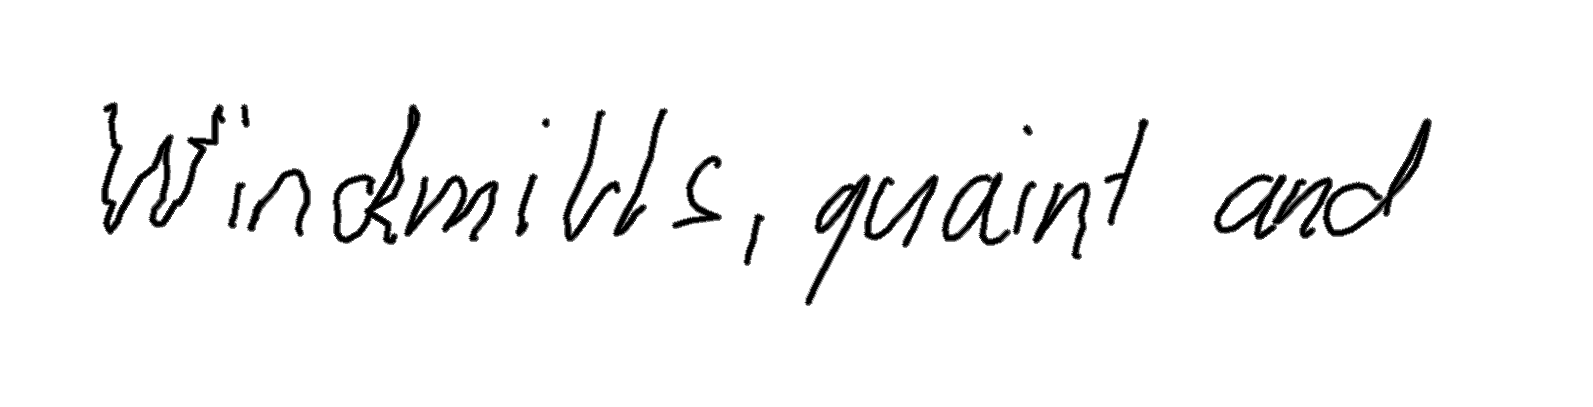 Windmills, quaint and